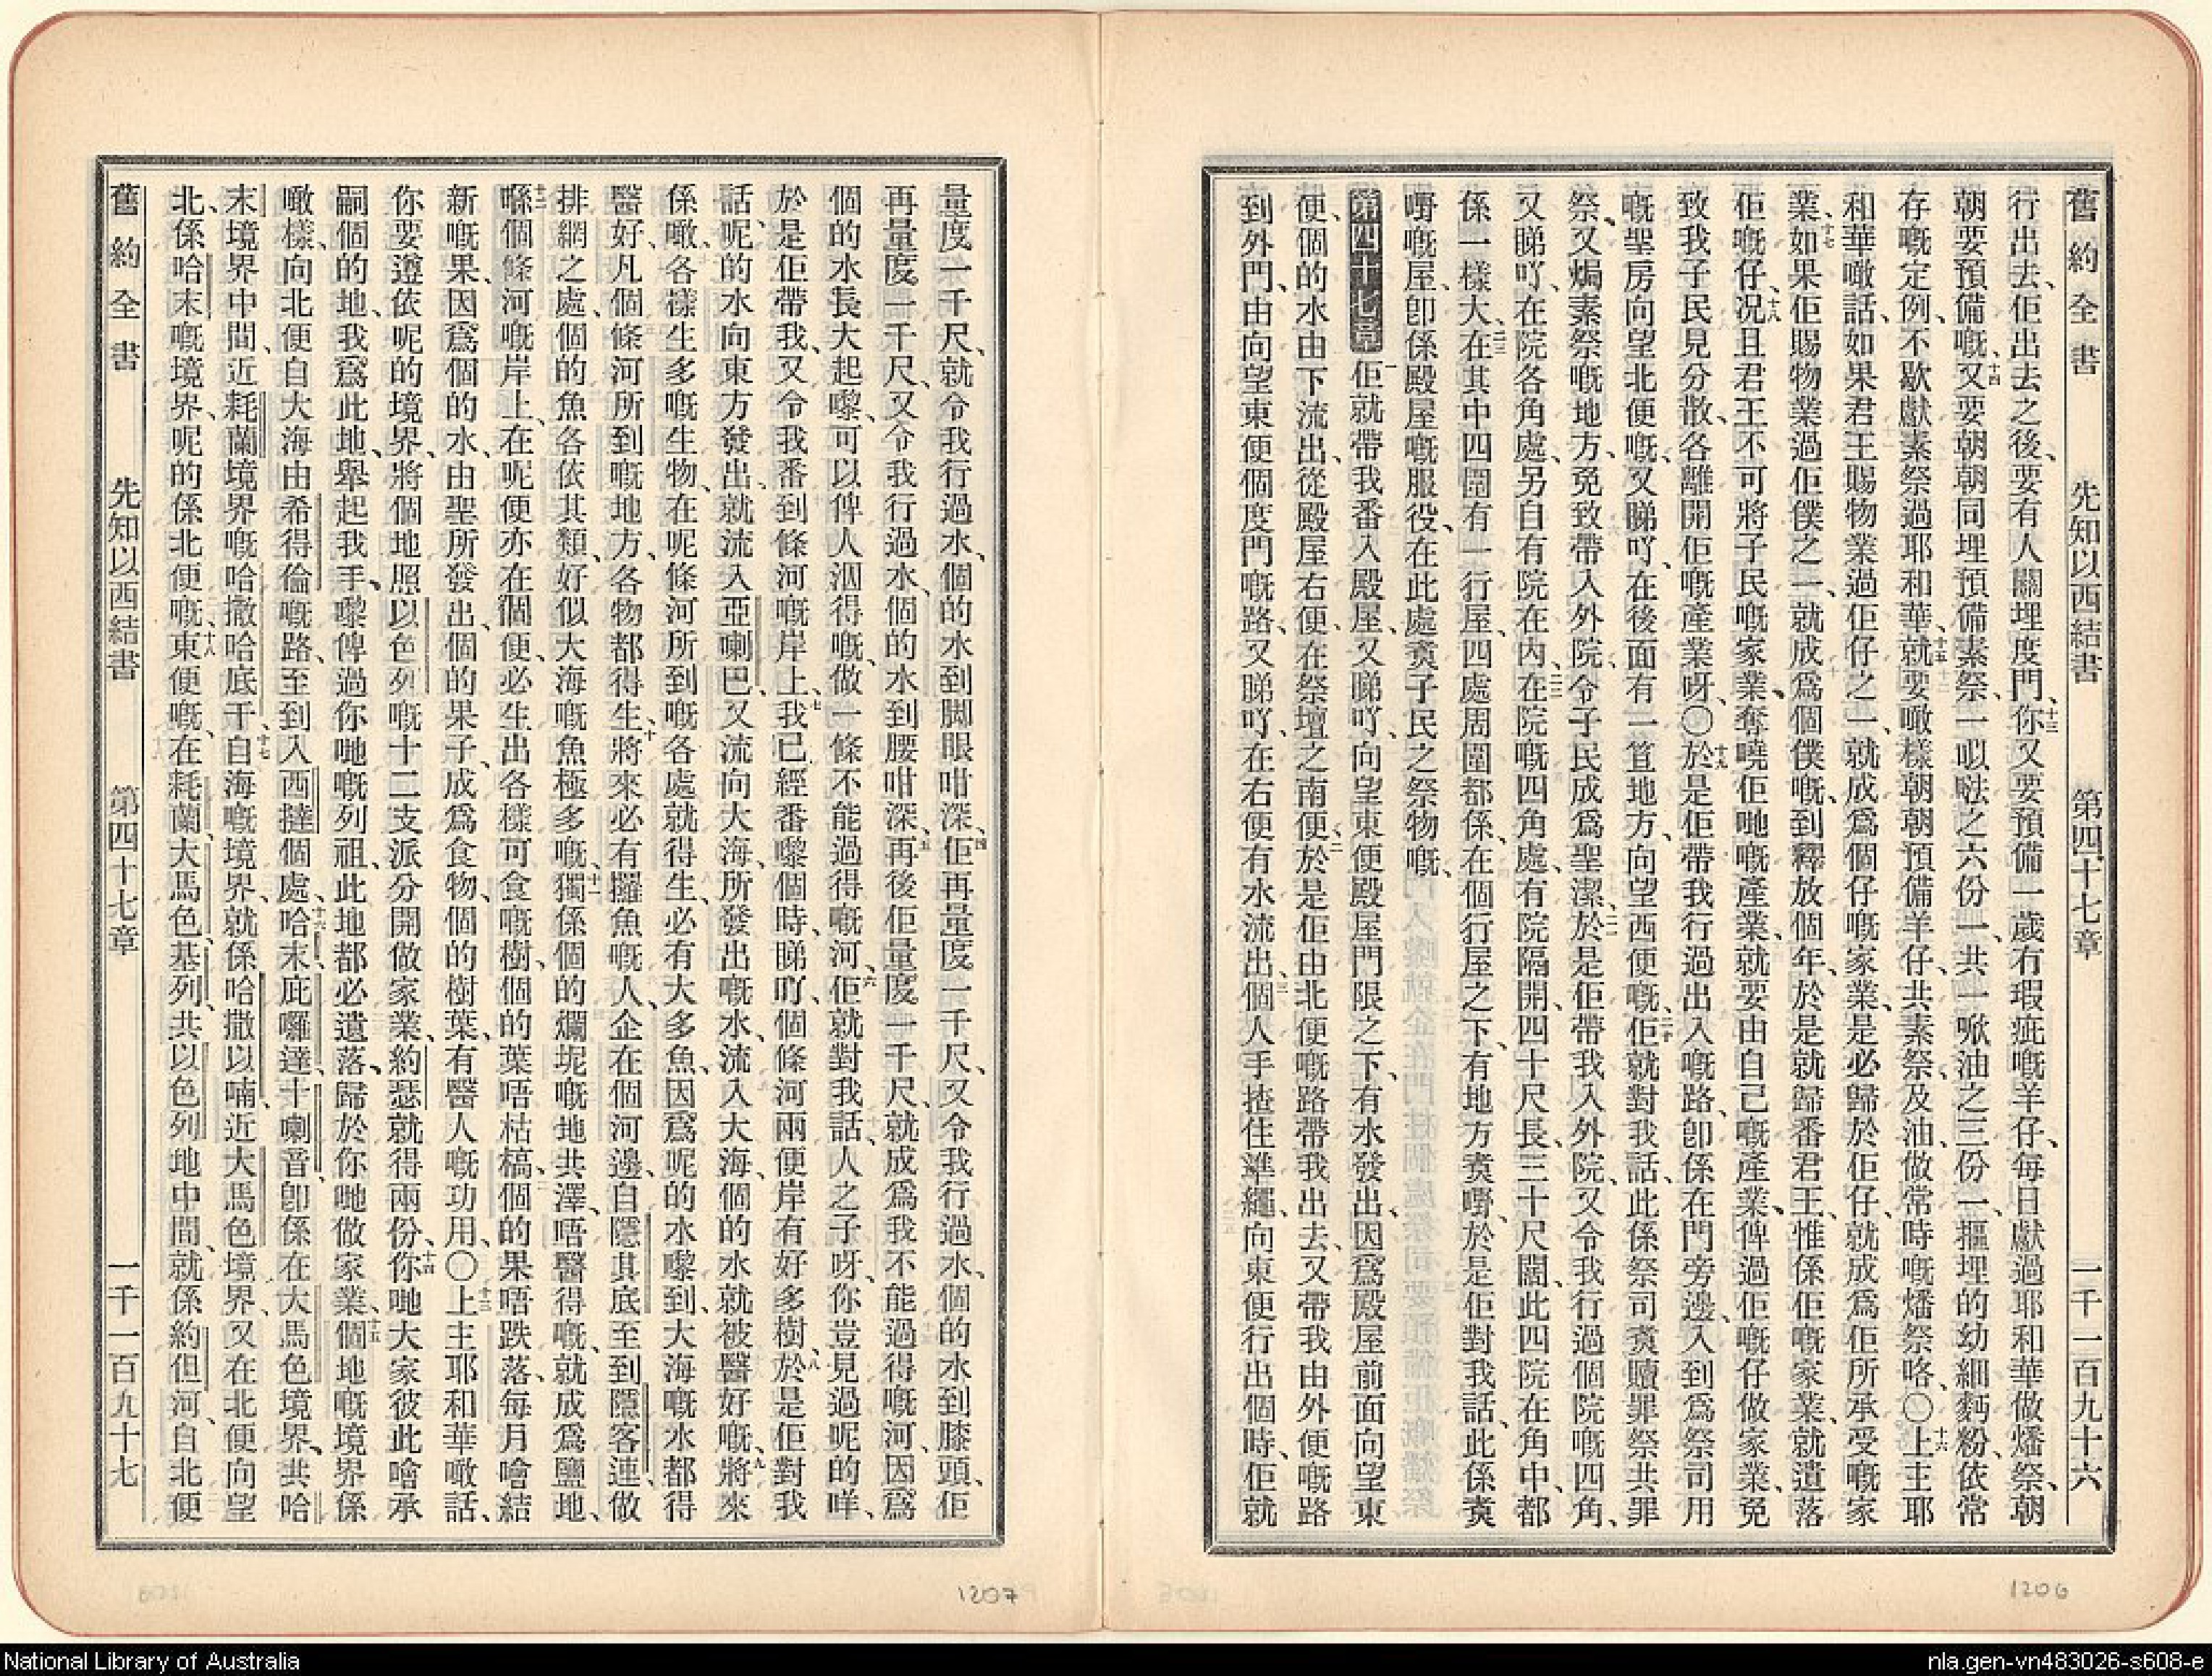 舊約全書　先知以西結書　第四十七章　一千一百九十六
行出去、佢出去之後、要有人關埋度門、十三你又要預備一歲有瑕疵嘅羊仔、每日獻過耶和華做燔祭、朝
朝要預備嘅、十四又要朝朝同埋預備素祭、一𠸎㗎之六份一、共一㖩油之三份一、摳埋的幼細麪粉、依常
存嘅定例、不歇獻素祭過耶和華、十五就要噉樣朝朝預備羊仔、共素祭、及油、做常時嘅燔祭咯、〇十六上主耶
和華噉話、如果君王賜物業過佢仔之一、就成爲個仔嘅家業、是必歸於佢仔、就成爲佢所承受嘅家
業、十七如果佢賜物業過佢僕之一、就成爲個僕嘅、到釋放個年、於是就歸番君王、惟係佢嘅家業、就遺落
佢嘅仔、十八況且君王不可將子民嘅家業、奪曉佢哋嘅產業、就要由自己嘅產業、俾過佢嘅仔做家業、免
致我子民見分散、各離開佢嘅產業呀、〇十九於是佢帶我行過出入嘅路、卽係在門旁邊、入到爲祭司用
嘅聖房向望北便嘅、又睇吓、在後面有一笪地方、向望西便嘅、二十佢就對我話、此係祭司煑贖罪祭共罪
祭、又焗素祭嘅地方、免致帶入外院、令子民成爲聖潔、二一於是佢帶我入外院、又令我行過個院嘅四角、
又睇吓、在院各角處、另自有院在內、二二在院嘅四角處、有院隔開、四十尺長、三十尺闊、此四院在角中、都
係一樣大、二三在其中四圍有一行屋、四處周圍都係、在個行屋之下、有地方煑嘢、於是佢對我話、此係煑
嘢嘅屋、卽係殿屋嘅服役、在此處煑子民之祭物嘅、
第四十七章　一佢就帶我番入殿屋、又睇吓、向望東便殿屋門限之下、有水發出、因爲殿屋前面向望東
便、個的水由下流出、從殿屋右便、在祭壇之南便、二於是佢由北便嘅路帶我出去、又帶我由外便嘅路
到外門、由向望東便個度門嘅路、又睇吓、在右便有水流出、三個人手揸住準繩、向東便行出個時、佢就
1206
量度一千尺、就令我行過水、個的水到脚眼咁深、四佢再量度一千尺、又令我行過水、個的水到膝頭、佢
再量度一千尺、又令我行過水、個的水到腰咁深、五再後佢量度一千尺、就成爲我不能過得嘅河、因爲
個的水長大起嚟、可以俾人洇得嘅、做一條不能過得嘅河、六佢就對我話、人之子呀、你豈見過呢的咩、
於是佢帶我、又令我番到條河嘅岸上、七我已經番嚟個時、睇吓、個條河兩便岸有好多樹、八於是佢對我
話、呢的水向東方發出、就流入亞喇巴、又流向大海、所發出嘅水、流入大海、個的水就被醫好嘅、九將來
係噉、各樣生多嘅生物、在呢條河所到嘅各處就得生、必有大多魚、因爲呢的水嚟到、大海嘅水都得
醫好、凡個條河所到嘅地方、各物都得生、十將來必有攞魚嘅人、企在個河邊、自隱其底至到隱客連、做
排網之處、個的魚各依其類、好似大海嘅魚極多嘅、十一獨係個的爛坭嘅地共澤、唔醫得嘅、就成爲鹽地、
十二喺個條河嘅岸上、在呢便亦在個便、必生出各樣可食嘅樹、個的葉唔枯槁、個的果唔跌落、每月噲結
新嘅果、因爲個的水、由聖所發出、個的果子、成爲食物、個的樹葉、有醫人嘅功用、〇十三上主耶和華噉話、
你要遵依呢的境界、將個地照以色列嘅十二支派分開做家業、約瑟就得兩份、十四你哋大家彼此噲承
嗣個的地、我爲此地、舉起我手、嚟俾過你哋嘅列祖、此地都必遺落、歸於你哋做家業、十五個地嘅境界係
噉樣、向北便自大海由希得倫嘅路、至到入西撻個處、十六哈末、庇囉達、十喇音、卽係在大馬色境界、共哈
末境界中間、近耗蘭境界嘅哈撒哈底干、十七自海嘅境界、就係哈撒以喃、近大馬色境界、又在北便向望
北、係哈末嘅境界、呢的係北便嘅、十八東便嘅、在耗蘭、大馬色、基列、共以色列地中間、就係約但河、自北便
舊約全書　先知以西結書　第四十七章　一千一百九十七
1207
National Library of Australia
nla.gen-vn483026-s608-e